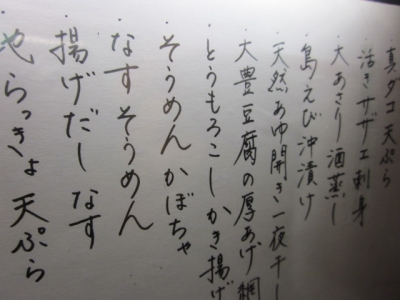 真ダコ天ぷら
・活きサザエ刺身
・大あさり酒蒸し
・島えび沖漬け
・天然あゆ開き一夜干し
・大豊豆腐の厚あげ網
・とうもろこしかき揚げ
・そうめんかぼちゃ
・なすそうめん
・揚げだしなす
・池らっきょ天ぷら